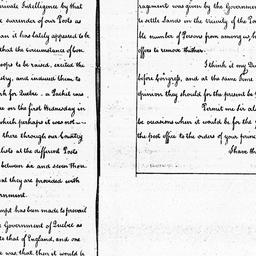 rivate Intelligence by that
e surrender of our Posts as
an it has lately appeared to be
that the circumstance of bon
oops to be raised, excited the
dry, and induced them to
sh for Quebec. a Packet was
e on the first Wednesday in
which perhaps it was not
there through our Country
lists at the different Posts
between six and seven thou
at they are provided with
ernment.
mpt has been made to prevail
e Government of Quebec as
to that of England, and one
e was that then it would be
ragement was given by the Government
to settle Lands in the vicinity of the Po
ble number of Persons from among us, wh
offers to remove thither.
I think it my Du
before Congress, and at the same time
opinion they should for the present be
Permit me Sir al
be occasions when it would be for the
the post office to the orders of your prin
I have th